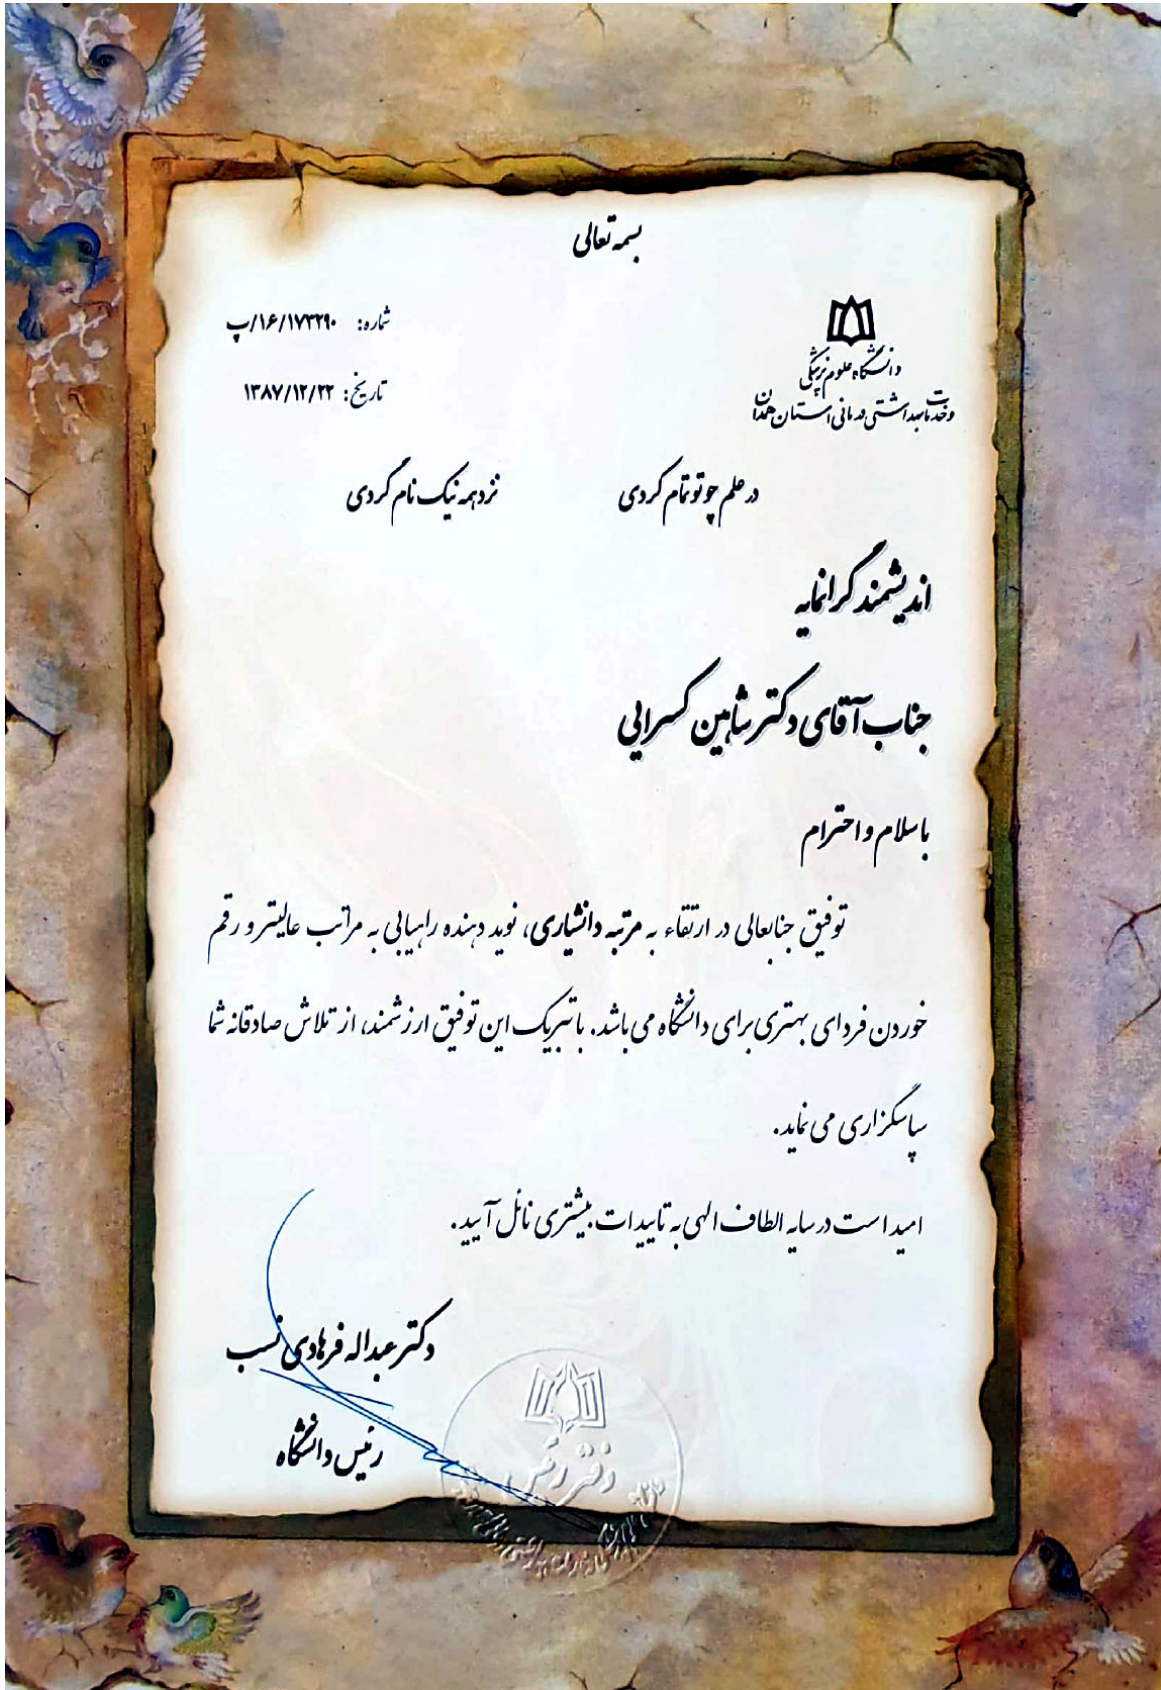 بسمه تعالی
شماره: ۱۶/۱۷۳۲۹۰/پ
تاریخ: ۱۳۸۷/۱۲/۲۲
دانشگاه علوم پزشکی
و خدمات بهداشتی درمانی استان همدان
در علم چو تو تمام گردی نزد همه نیک نام گردی
اندیشمند گرانمایه
جناب آقای دکتر شاهین کسرایی
با سلام و احترام
توفیق جنابعالی در ارتقاء به مرتبه دانشیاری، نوید دهنده راهیابی به مراتب عالیتر و رقم
خوردن فردای بهتری برای دانشگاه می باشد. با تبریک این توفیق ارزشمند، از تلاش صادقانه شما
سپاسگزاری می نماید.
امید است در سایه الطاف الهی به تاییدات بیشتری نائل آیید.
دکتر عبداله فرهادی نسب
رئیس دانشگاه
دفتر رئیس